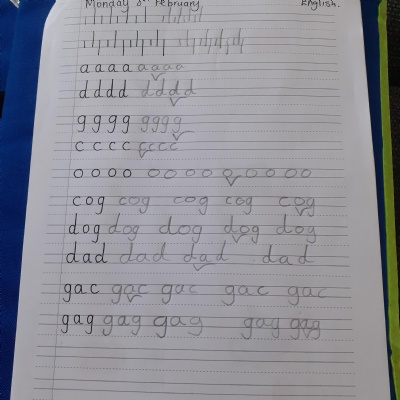 Monday 8th February English.
a a a a a a a a
d d d d d d d d
g g g g g g g g
c c c c c c c c
o o o o o o o o o o o o
cog cog cog cog cog
dog dog dog dog dog
dad dad dad dad
gac gac gac gac gac
gag gag gag gag gag